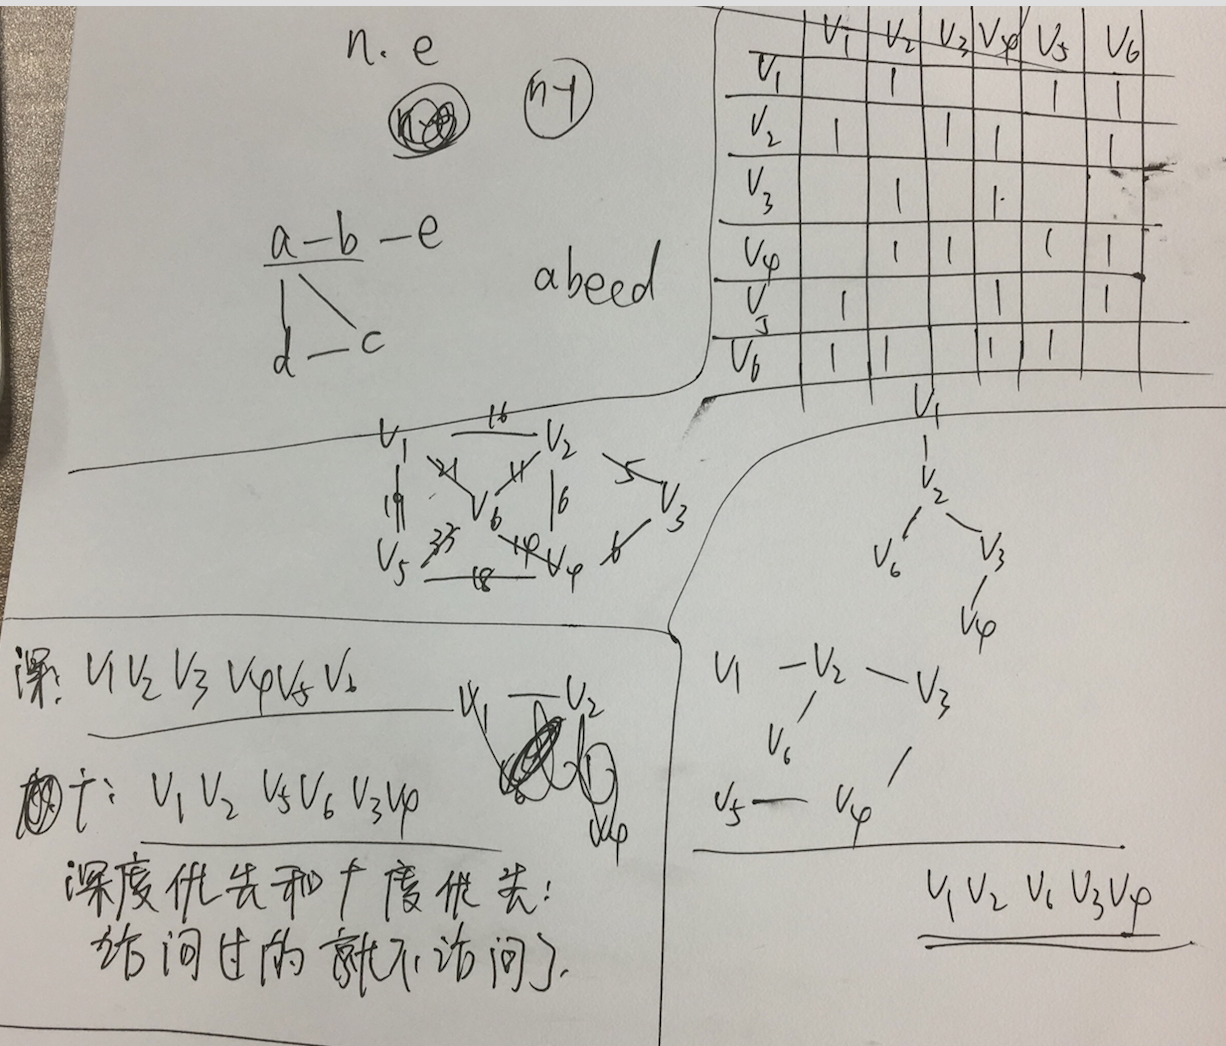 n. e
n-1
a-b-e
d-c
abeed
V1 V2 V3 V4 V5 V6
V1 1 1 1
V2 1 1 1 1
V3 1 1
V4 1 1 1 1
V5 1 1 1
V6 1 1 1 1
V1 16 V2
21 11 5
19 V6 6 V3
33 14 6
V5 18 V4
V1
V2
V6 V3
V4
深: V1 V2 V3 V4 V5 V6
V1 — V2
V4
广: V1 V2 V5 V6 V3 V4
深度优先和广度优先:
访问过的就不访问了.
V1 — V2 — V3
V6
V5 — V4
V1 V2 V6 V3 V4